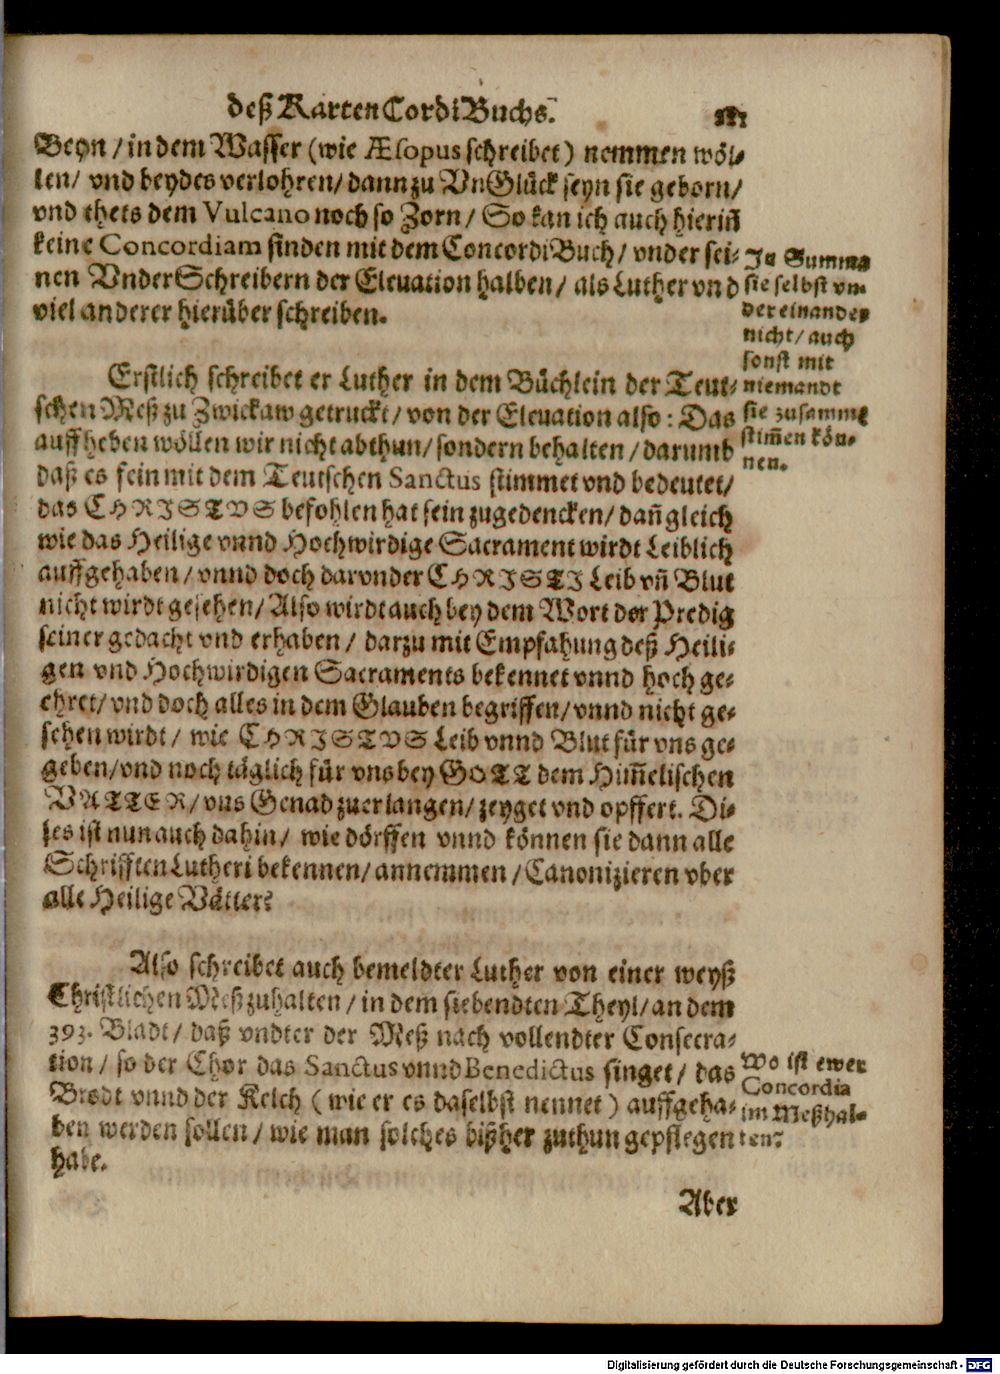 deß KartenCordiBuchs.
Beyn / in dem Wasser (wie Æsopus schreibet) nemmen wöl-
len / vnd beydes verlohren / dann zu VnGlück seyn sie geborn /
vnd thets dem Vulcano noch so Zorn / So kan ich auch hierin̄
keine Concordiam finden mit dem ConcordiBuch / vnder sei-
nen VnderSchreibern der Eleuation halben / als Luther vnd
viel anderer hierüber schreiben.
In Summa
sie selbst vn-
der einander
nicht / auch
sonst mit
niemandt
sie zusamme
stim̄en kön-
nen.
Erstlich schreibet er Luther in dem Büchlein der Teut-
schen Meß zu Zwickaw getruckt / von der Eleuation also: Das
auffheben wöllen wir nicht abthun / sondern behalten / darumb
daß es fein mit dem Teutschen Sanctus stimmet vnd bedeutet /
das CHRISTVS befohlen hat sein zugedencken / dan̄ gleich
wie das Heilige vnnd Hochwirdige Sacrament wirdt Leiblich
auffgehaben / vnnd doch darvnder CHRISTI Leib vn̄ Blut
nicht wirdt gesehen / Also wirdt auch bey dem Wort der Predig
seiner gedacht vnd erhaben / darzu mit Empfahung deß Heili-
gen vnd Hochwirdigen Sacraments bekennet vnnd hoch ge-
ehret / vnd doch alles in dem Glauben begriffen / vnnd nicht ge-
sehen wirdt / wie CHRISTVS Leib vnnd Blut für vns ge-
geben / vnd noch täglich für vns bey GOTT dem Him̄elischen
VATTER / vns Genad zuerlangen / zeyget vnd opffert. Di-
ses ist nun auch dahin / wie dörffen vnnd können sie dann alle
Schrifften Lutheri bekennen / annemmen / Canonizieren vber
alle Heilige Vätter?
Also schreibet auch bemeldter Luther von einer weyß
Christlichen Meß zuhalten / in dem siebendten Theyl / an dem
393. Bladt / daß vndter der Meß nach vollendter Consecra-
tion / so der Chor das Sanctus vnnd Benedictus singet / das
Brodt vnnd der Kelch (wie er es daselbst nennet) auffgeha-
ben werden sollen / wie man solches bißher zuthun gepflegen
habe.
Wo ist ewer
Concordia
im Meßhal-
ten?
Aber
Digitalisierung gefördert durch die Deutsche Forschungsgemeinschaft - DFG